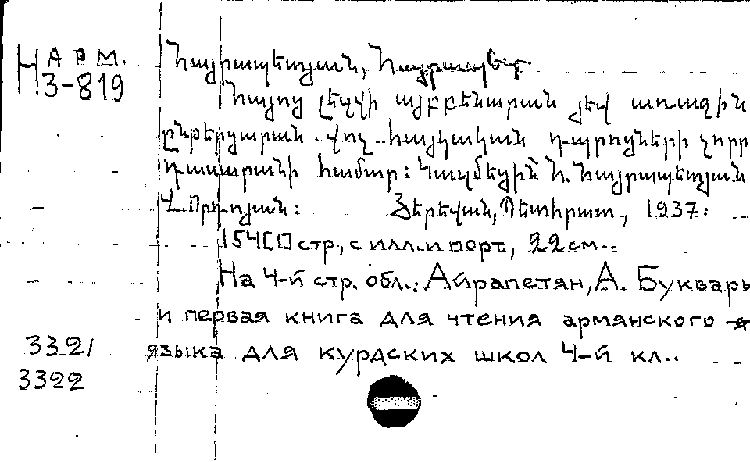 АРМ.
Н 3-819
Հայրապետյան, Հայրապետ
Հայոց լեզվի այբբենարան յեվ առաջին
ընթերցարան վոչ հայկական դպրոցների չորր
դասարանի համար: Կազմեցին Հ. Հայրապետյան
Յերեվան, Պետհրատ, 1937:
154[1] стр., с илл. и порт, 22 см..
На 4-й стр. обл.: Айрапетян, А. Букварь
и первая книга для чтения армянского
языка для курдских школ 4-й кл..
3321
3322